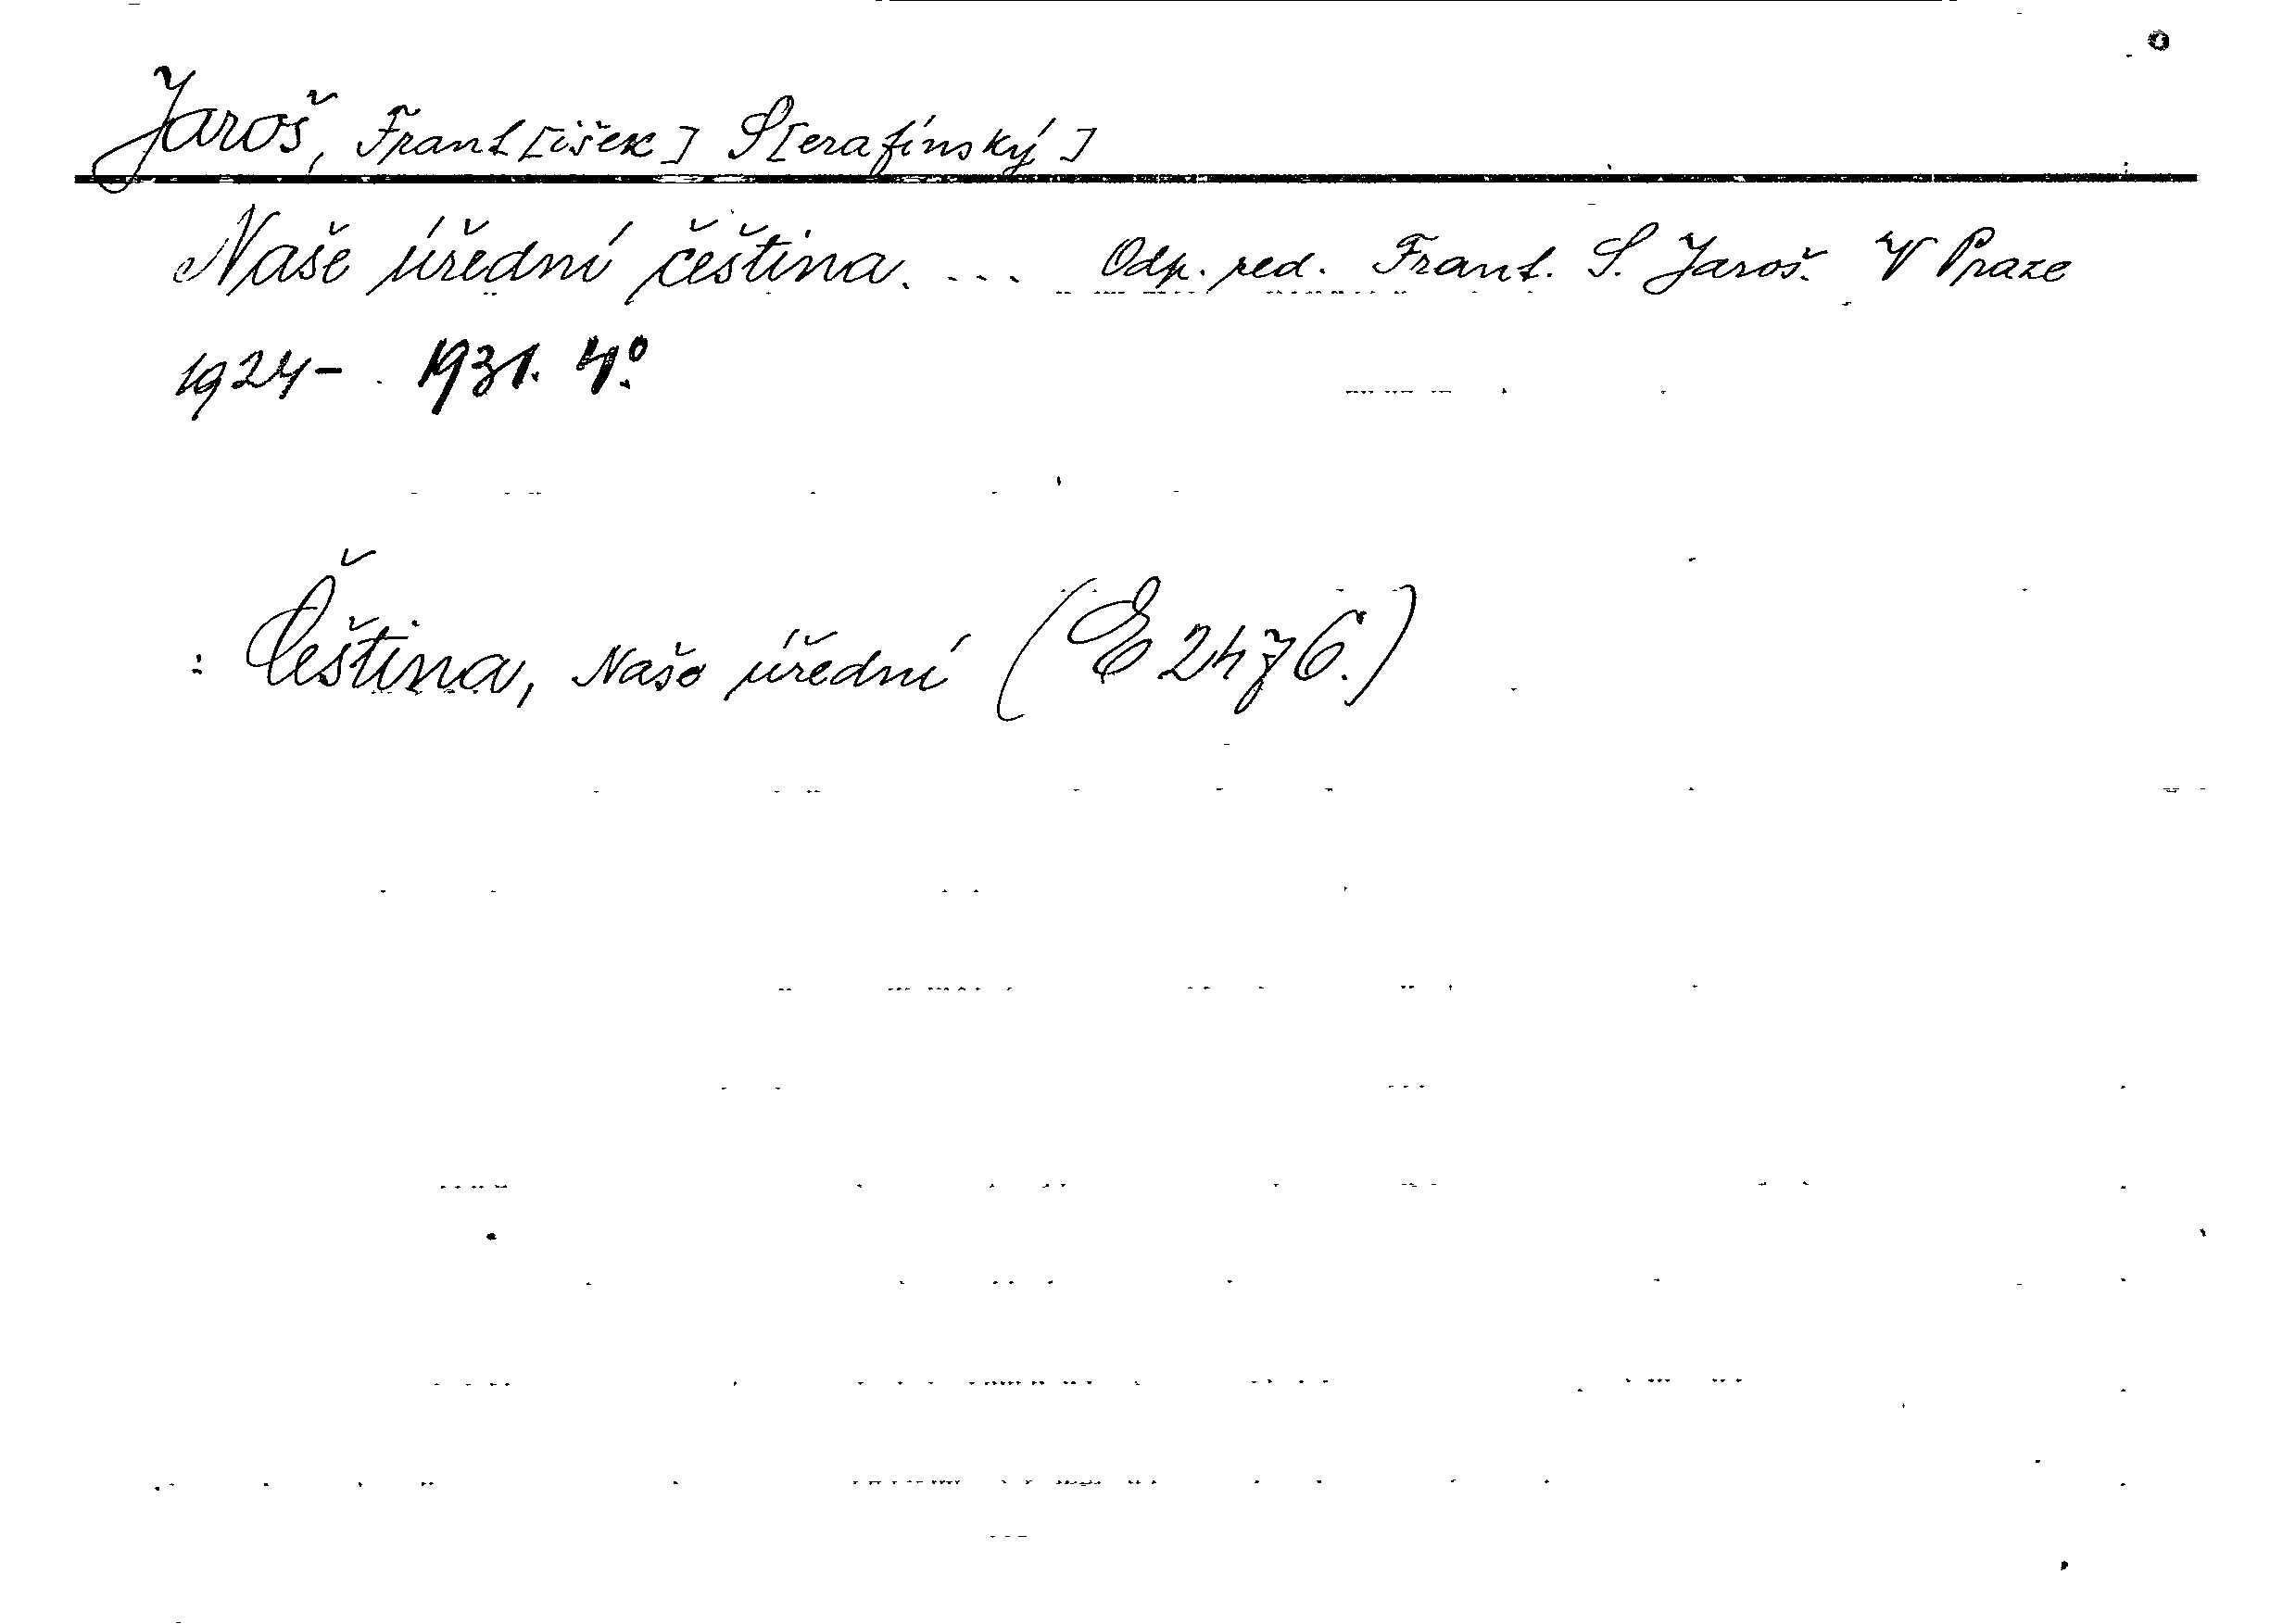 Jaroš, Frant[išek] S[erafínský]
Naše úřední čeština. ... Odp. red. Frant. S. Jaroš. V Praze
1924- 1931. 4°.
: Čeština, Naše úřední (E 2476.)